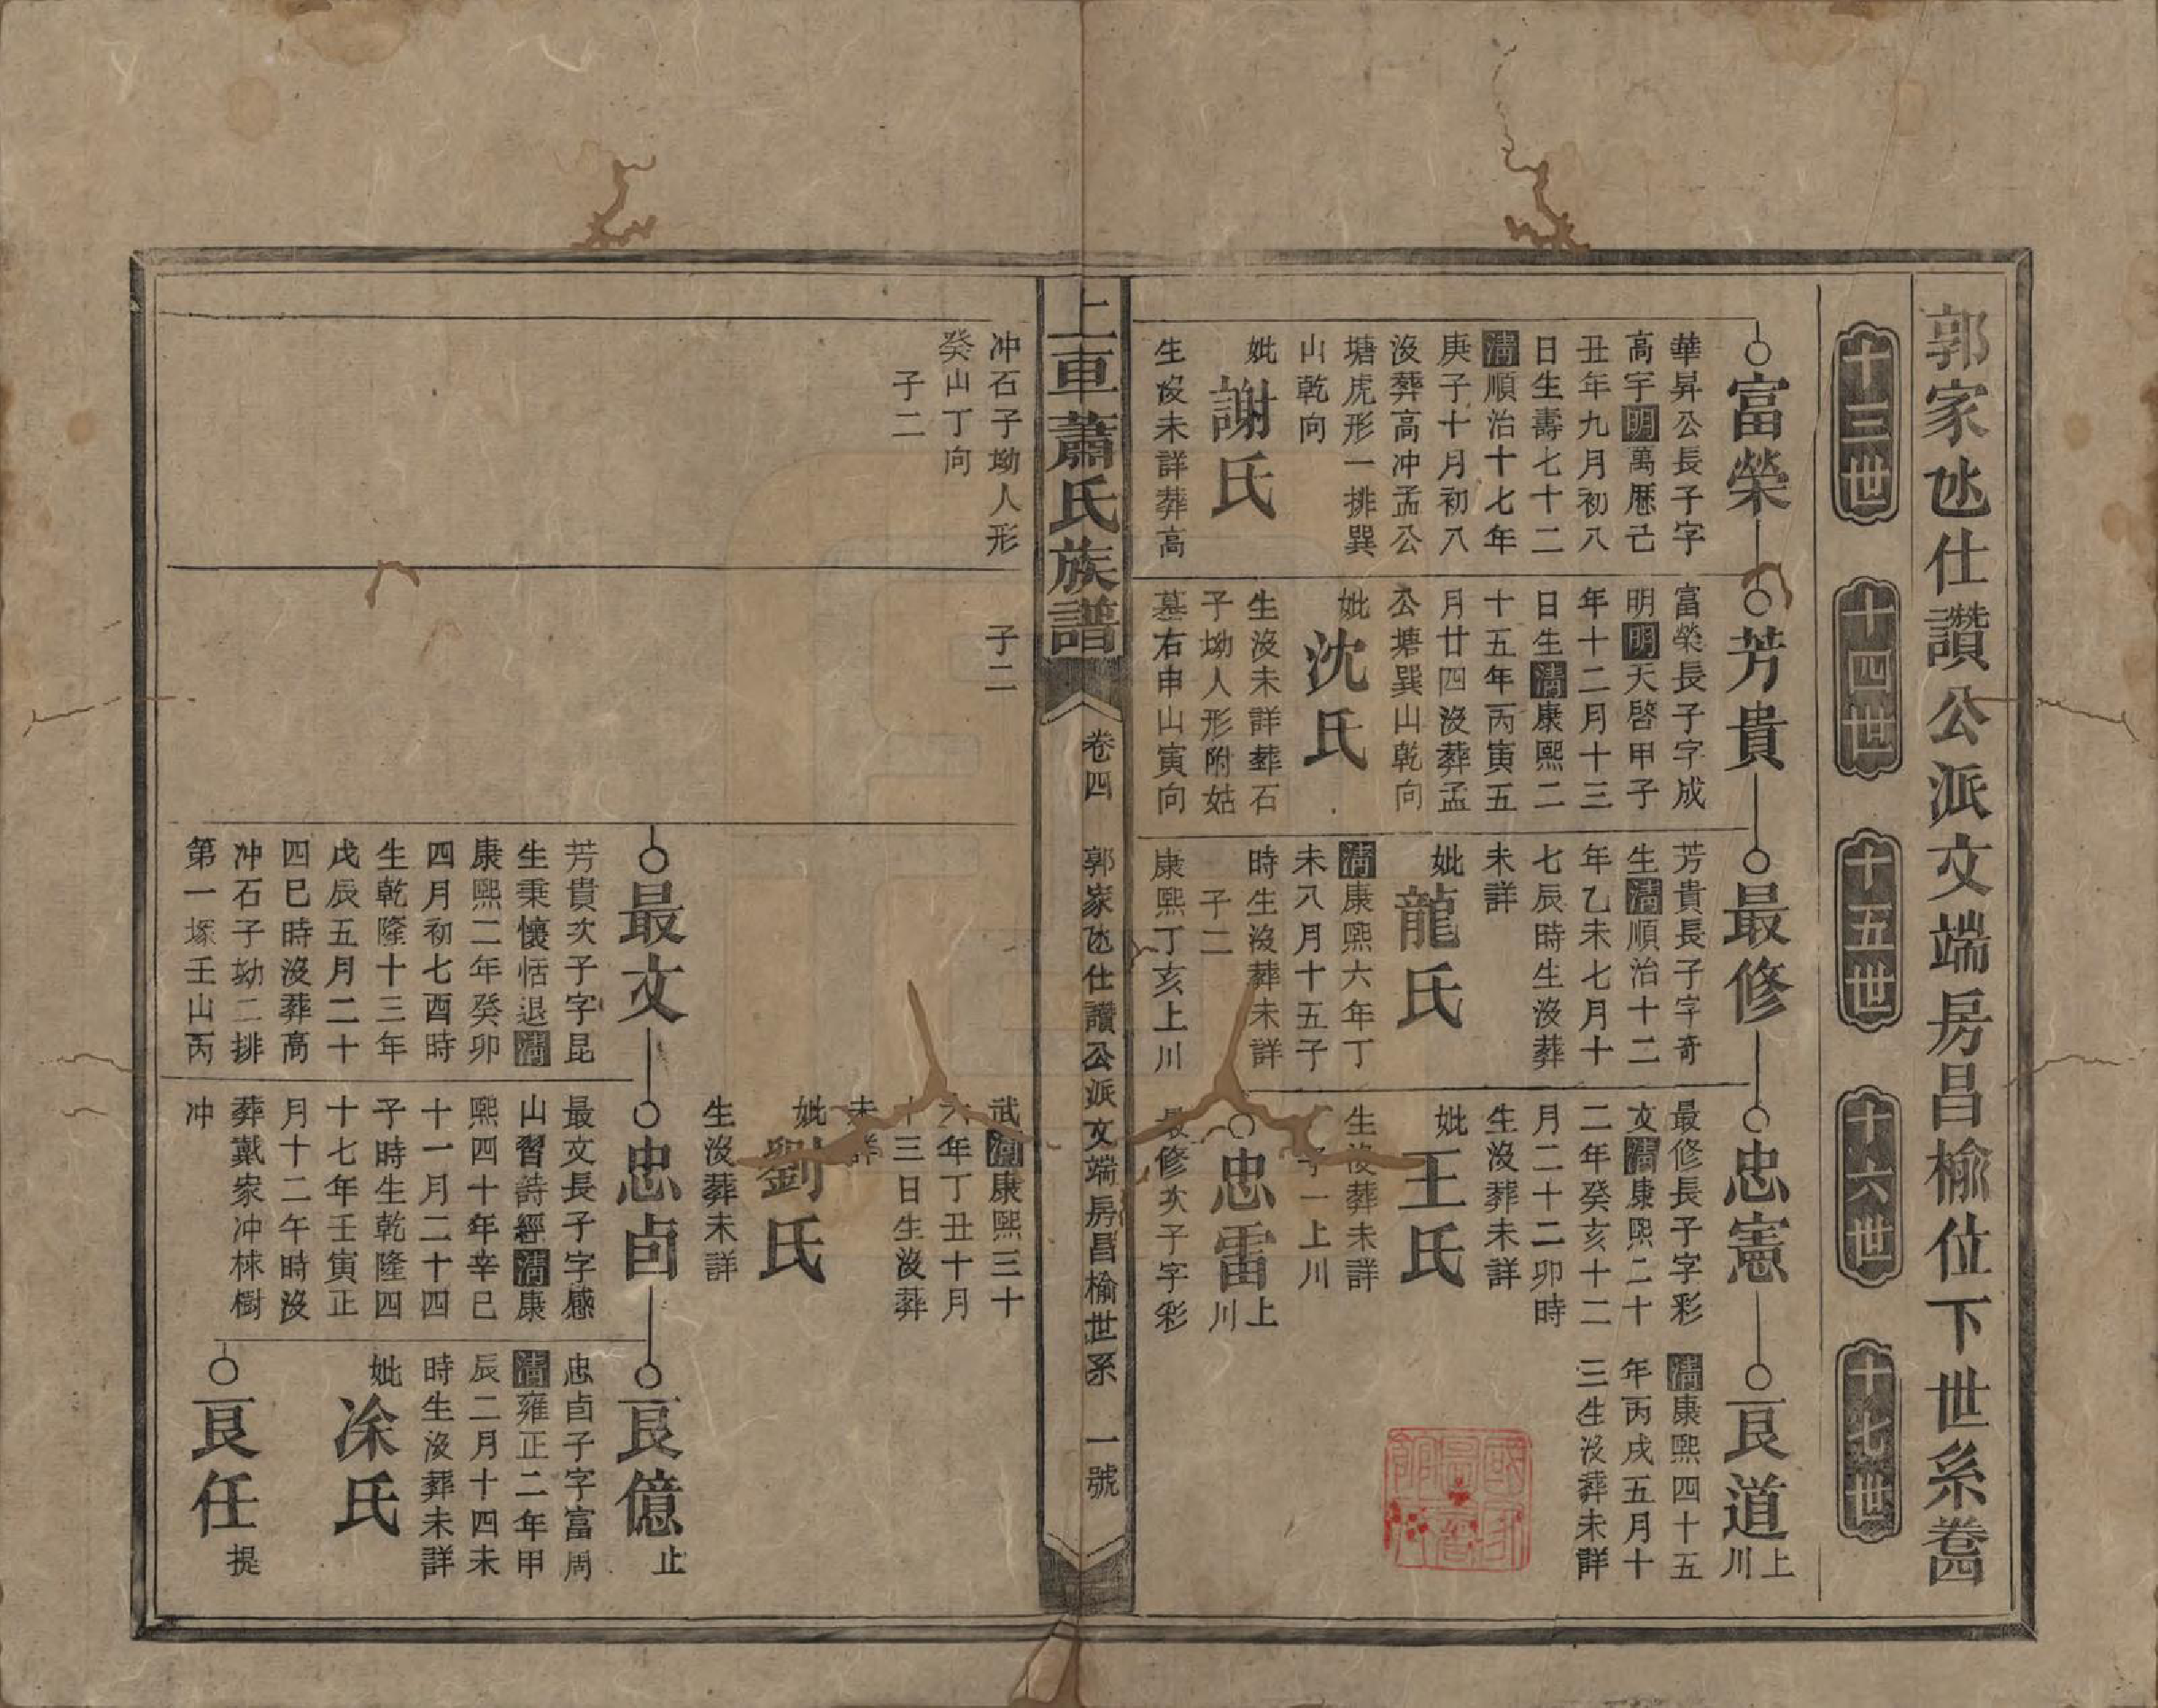 郭家氹仕讚公派文端房昌榆位下世系卷四
十三世
十四世
十五世
十六世
十七世
富榮
華昇公長子字
高宇明萬厯己
丑年九月初八
日生壽七十二
清順治十七年
庚子十月初八
沒葬高冲孟公
塘虎形一排巽
山乾向
妣謝氏
生沒未詳葬高
芳貴
富榮長子字成
明明天啓甲子
年十二月十三
日生清康熙二
十五年丙寅五
月廿四沒葬孟
公塘巽山乾向
妣沈氏
生沒未詳葬石
子坳人形附姑
墓右申山寅向
最修
芳貴長子字奇
生清順治十二
年乙未七月十
七辰時生沒葬
未詳
妣龍氏
清康熙六年丁
未八月十五子
時生沒葬未詳
子二
康熙丁亥上川
忠憲
最修長子字彩
文清康熙二十
二年癸亥十二
月二十二卯時
生沒葬未詳
妣王氏
生沒葬未詳
子一上川
忠雷上川
最修次子字彩
良道上川
清康熙四十五
年丙戌五月十
三生沒葬未詳
上車蕭氏族譜
卷四
郭家氹仕讚公派文端房昌榆世系
一號
冲石子坳人形
癸山丁向
子二
子二
武清康熙三十
六年丁丑十月
十三日生沒葬
未詳
妣劉氏
生沒葬未詳
最文
芳貴次子字昆
生秉懷恬退清
康熙二年癸卯
四月初七酉時
生乾隆十三年
戊辰五月二十
四巳時沒葬高
冲石子坳二排
第一塚壬山丙
忠卣
最文長子字感
山習詩經清康
熙四十年辛巳
十一月二十四
子時生乾隆四
十七年壬寅正
月十二午時沒
葬戴家冲楝樹
冲
良億止
忠卣子字富周
清雍正二年甲
辰二月十四未
時生沒葬未詳
妣凃氏
良任提